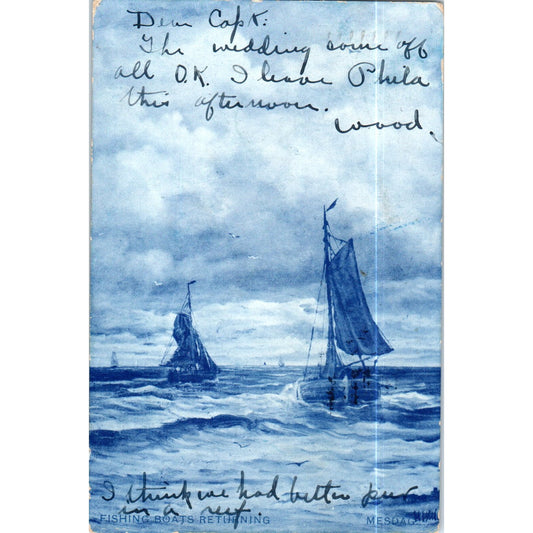 Dear Capt:
The wedding come off
all O.K. I leave Phila
this afternoon.
Wood.
I think we had better put
in a reef.
FISHING BOATS RETURNING MESDAG